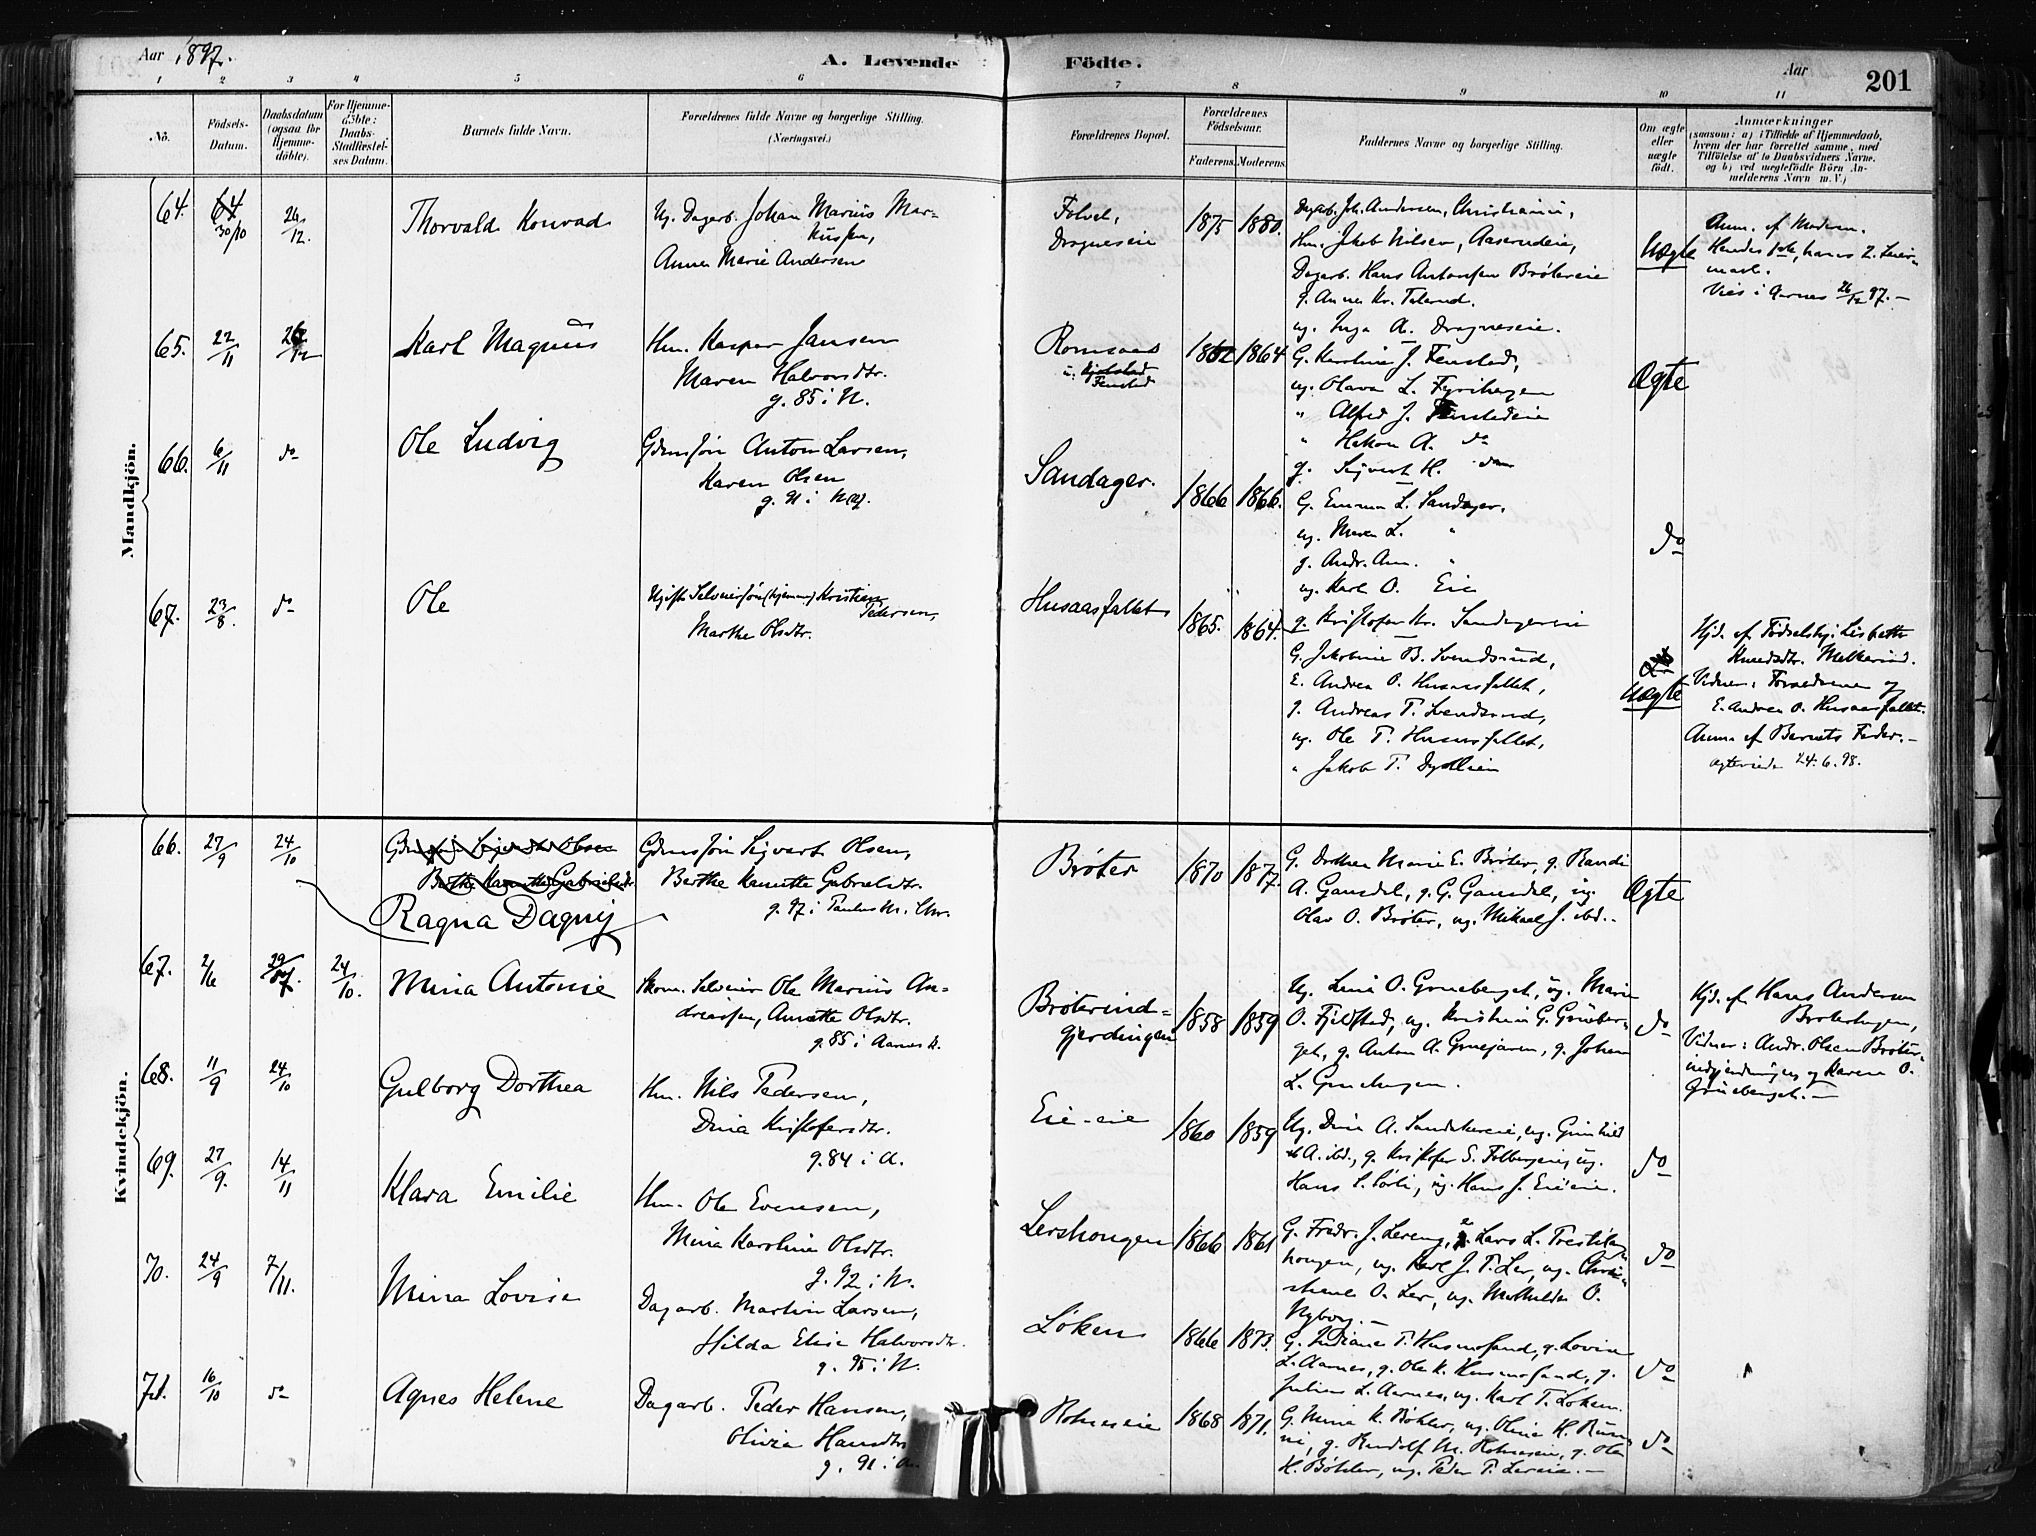 Aar 1897.
A. Levende Födte.
Aar
201
1 2 3 4 5 6 7 8 9 10 11
No.
Födsels-
Datum.
Daabsdatum
(ogsaa for
Hjemme-
döbte).
For Hjemme-
döbte:
Daabs-
Stadfæstel-
ses Datum.
Barnets fulde Navn.
Forældrenes fulde Navne og borgerlige Stilling.
(Næringsvei.)
Forældrenes Bopæl.
Forældrenes
Födselsaar.
Faderens. Moderens.
Faddernes Navne og borgerlige Stilling.
Om ægte
eller
uægte
født.
Anmærkninger
(saasom: a) i Tilfælde af Hjemmedaab,
hvem der har forrettet samme, med
Tilföielse af to Daabsvidners Navne,
og b) ved uægtefödte Börn An-
melderens Navn m. V.)
Mandkjön.
64. 30/10 26/12. Thorvald Konrad
Ug. Dagarb. Johan Marius Mar-
kussen,
Anna Marie Andersen
Dragneseie
1875 1880.
Dagarb. Joh. Andersen, Christiania,
Hm. Jakob Nilsen, Aaserudeie,
Dagarb. Hans Antonsen Brøtereie
g. Anna Kr. Talerud.
ug. Inga A. Dragneseie.
Uægte
Anm. af Moderen.
Hendes 1ste, hans 2. Leier-
maal.
Viet i Aarnes 26/12 97.-
65. 22/11 26/12 Karl Magnus
Hm. Kasper Jansen
Maren Halvorsdtr.
g. 85 i N.
Romsaas
u. Fenstad
1862 1864
G. Karoline J. Fenstad,
ug. Olava L.
" Alfred J. Fenstadeie
" Hakon A. do
g. Sigvart H. do
Ægte
66. 6/11 do Ole Ludvig
Gdmsøn Anton Larsen,
Karen Olsen
g. 91 i N.
Sandager.
1866 1866.
G. Emma L. Sandager.
ug. Maren L. "
g. Andr. Am. "
ug. Karl O. Eie
do
67. 23/8. do Ole
Ugift Selveiersøn (hjemme) Kristian
Pedersen,
Marthe Olsdtr.
Husaasfallet
1865. 1864.
g. Kristofer Kr. Sandagereie
G. Jakobine B. Svendsrud,
E. Andrea O. Husaasfallet,
g. Andreas T. Svendsrud,
ug. Ole T. Husaasfallet,
" Jakob T.
Uægte
Hjd. af Fødselshj. Lisbeth
Knudsdtr. Melkerud.
Vidner: Forældrene og
E. Andrea O. Husaasfallet.
Anm. af Barnets Fader.-
24.6.98.
Kvindekjön.
66. 27/9 24/10
Ragna Dagny
Gdmsøn Sigvart Olsen,
Berthe Kanutte Gabrielsdtr.
g. 97 i Paulus M. Chr.
Brøter
1870 1877.
G. Dorthea Marie E. Brøter, g. Randi
A. Gansdal, g. G. Gansdal, ug.
Olav O. Brøter, ug. Mikael J. ibd.-
Ægte
67. 2/6 24/10. Mina Antonie
Skom. Selveier Ole Marius An-
dreassen, Annette Olsdtr.
g. 85 i Aarnes k.
Brøterind-
gjerdingen
1858 1859
Ug. Lina O. Grueberget, ug. Marie
O. Fjeldstad, ug. Kristian G. Grueber-
get, g. Anton A. Gruejaren, g. Johan
L. Gruehagen.
do
Hjd. af Hans Andersen
Brøterhagen,
Vidner: Andr. Olsen Brøter-
indgjerdingen og Karen O.
Grueberget.-
68. 11/9 24/10 Gulborg Dorthea
Hm. Nils Pedersen,
Dina Kristofersdtr.
g. 84 i A.
Eie-eie
1860 1859
Ug. Dina A. Sandakereie, ug. Gunhild
A. ibd., g. Kristofer S. ug.
Hans L. Sørli, ug. Hans J. Eieeie.
do
69. 27/9. 14/11 Klara Emilie
Hm. Ole Evensen,
Mina Karoline Olsdtr.
g. 92 i N.
Lershougen
1866 1861
G. Fredr. J. Lereng, Lars L.
hougen, ug. Karl J. T. Ler, ug. Chris-
tiane O. Ler, ug. Mathilde O.
Nyborg.-
do
70. 24/9 7/11. Mina Lovise
Dagarb. Martin Larsen,
Hilda Elise Halvorsdtr.
g. 95 i N.
Løken
1866 1873.
G. Indiana T. Husmosand, g. Lovise
L. Aarnes, g. Ole K. Husmosand, g.
Julius L. Aarnes, ug. Karl T. Løken.
do
71. 16/10 do Agnes Helene
Dagarb. Peder Hansen,
Olivia Hansdtr.
g. 91 i A.
Rolneseie
1868 1871.
G. Mina K. Bøhler, ug. Olina H.
g. Rudolf M. Rolneseie, g. Ole
H. Bøhler, ug. Peder T. Lereie.-
do